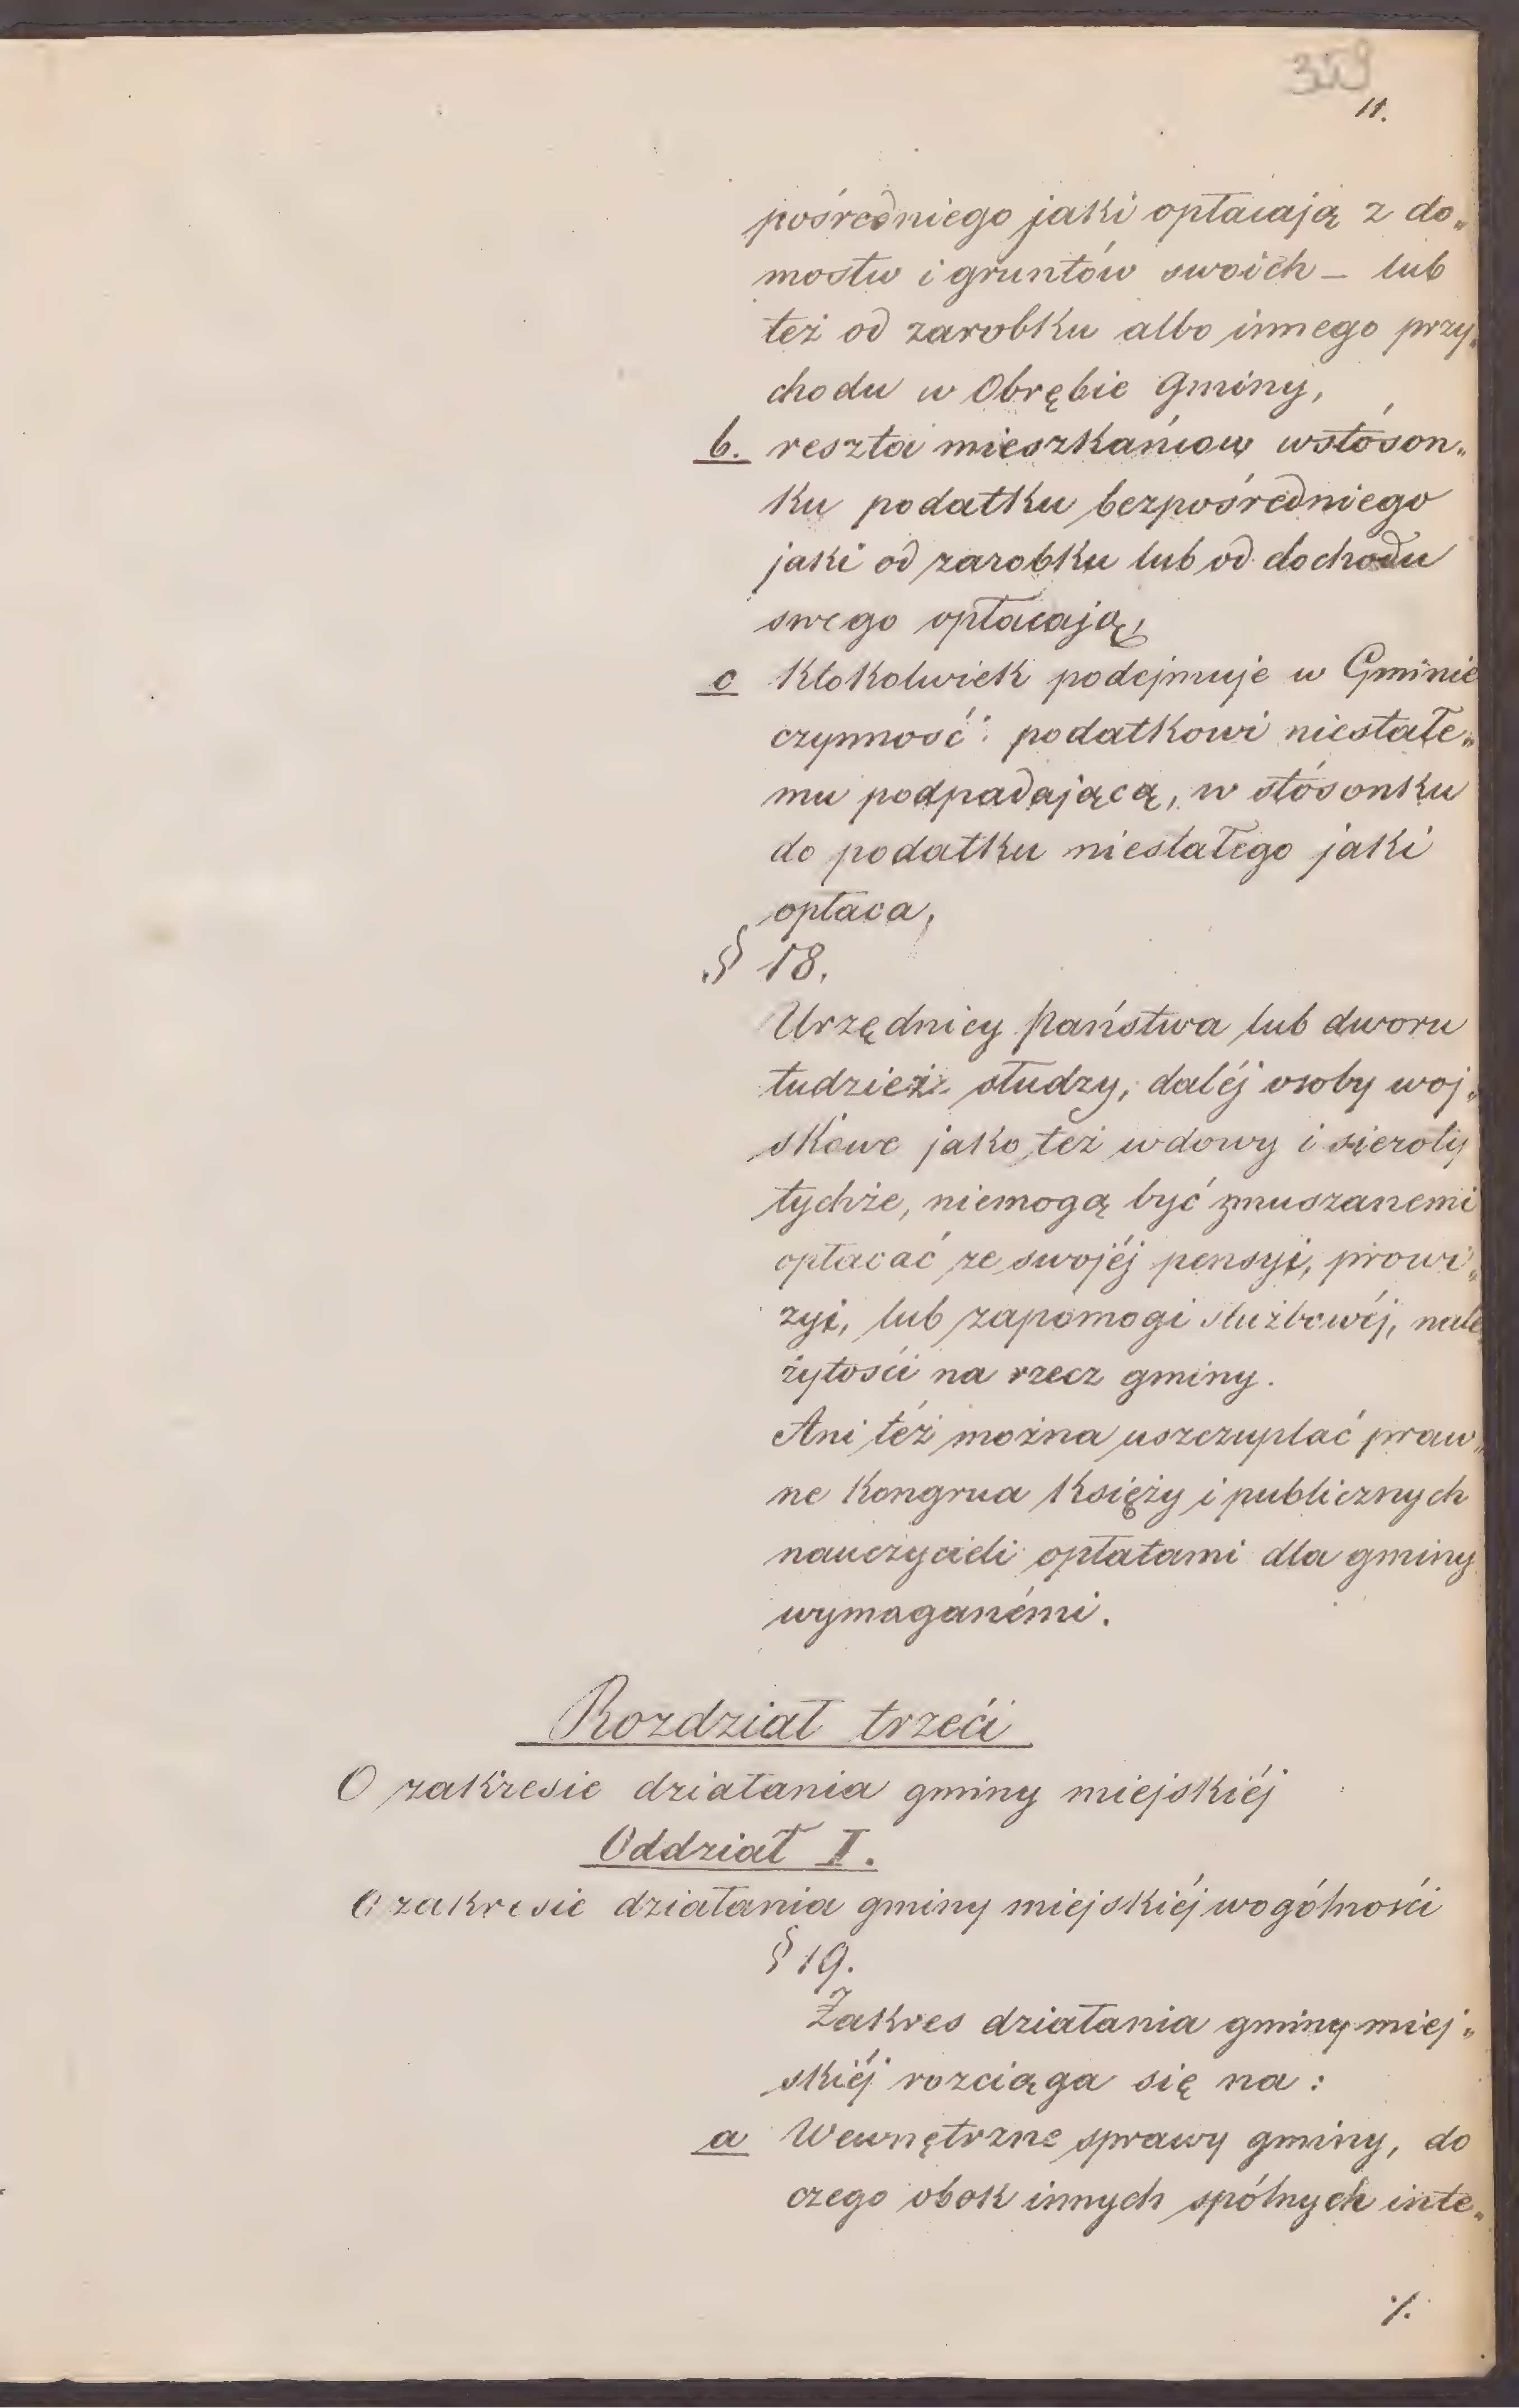 359
11.
pośredniego jaki opłacają z do„
mostw i gruntów swoich – lub
też od zarobku albo innego przy„
chodu w Obrębie Gminy,
b. reszta mieszkańcow wstóson„
ku podatku bezpośredniego
jaki od zarobku lub od dochodu
swego opłacają,
c Ktokolwiek podejmuje w Gminie
czynność podatkowi niestałe„
mu podpadającą, w stósonku
do podatku niestałego jaki
opłaca,
§ 18.
Urzędnicy Państwa lub dworu
tudzież słudzy, daléj osoby woj„
skowe jako też wdowy i sieroty
tychże, niemogą być zmuszanemi
opłacać ze swojéj pensyi, prowi„
zyi, lub zapomogi służbowéj, nale
żytości na rzecz gminy.
Ani téż można uszczuplać praw„
ne Kongrua Księży i publicznych
nauczycieli opłatami dla gminy
wymaganémi.
Rozdział trzeći
O zakresie działania gminy miejskiéj
Oddział I.
O zakresie działania gminy miejskiéj wogólnośći
§ 19.
Zakres działania gminy miej„
skiéj rozciąga się na :
a Wewnętrzne sprawy gminy, do
czego obok innych spólnych inte„
⁒